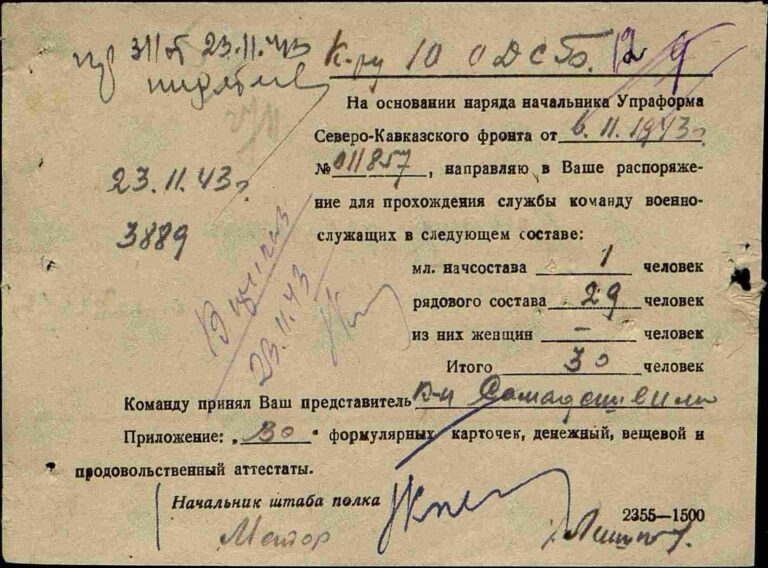 311б 23.11.43
К-ру 10 ОДСБ.
На основании наряда начальника Упраформа
Северо-Кавказского фронта от 6.11.1943г.
№ 011857, направляю в Ваше распоряже-
ние для прохождения службы команду военно-
служащих в следующем составе:
23.11.43г.
3889
23.11.43
мл. начсостава 1 человек
рядового состава 29 человек
из них женщин – человек
Итого 30 человек
Команду принял Ваш представитель
Приложение: „30“ формулярных карточек, денежный, вещевой и
продовольственный аттестаты.
Начальник штаба полка
Майор
2355—1500